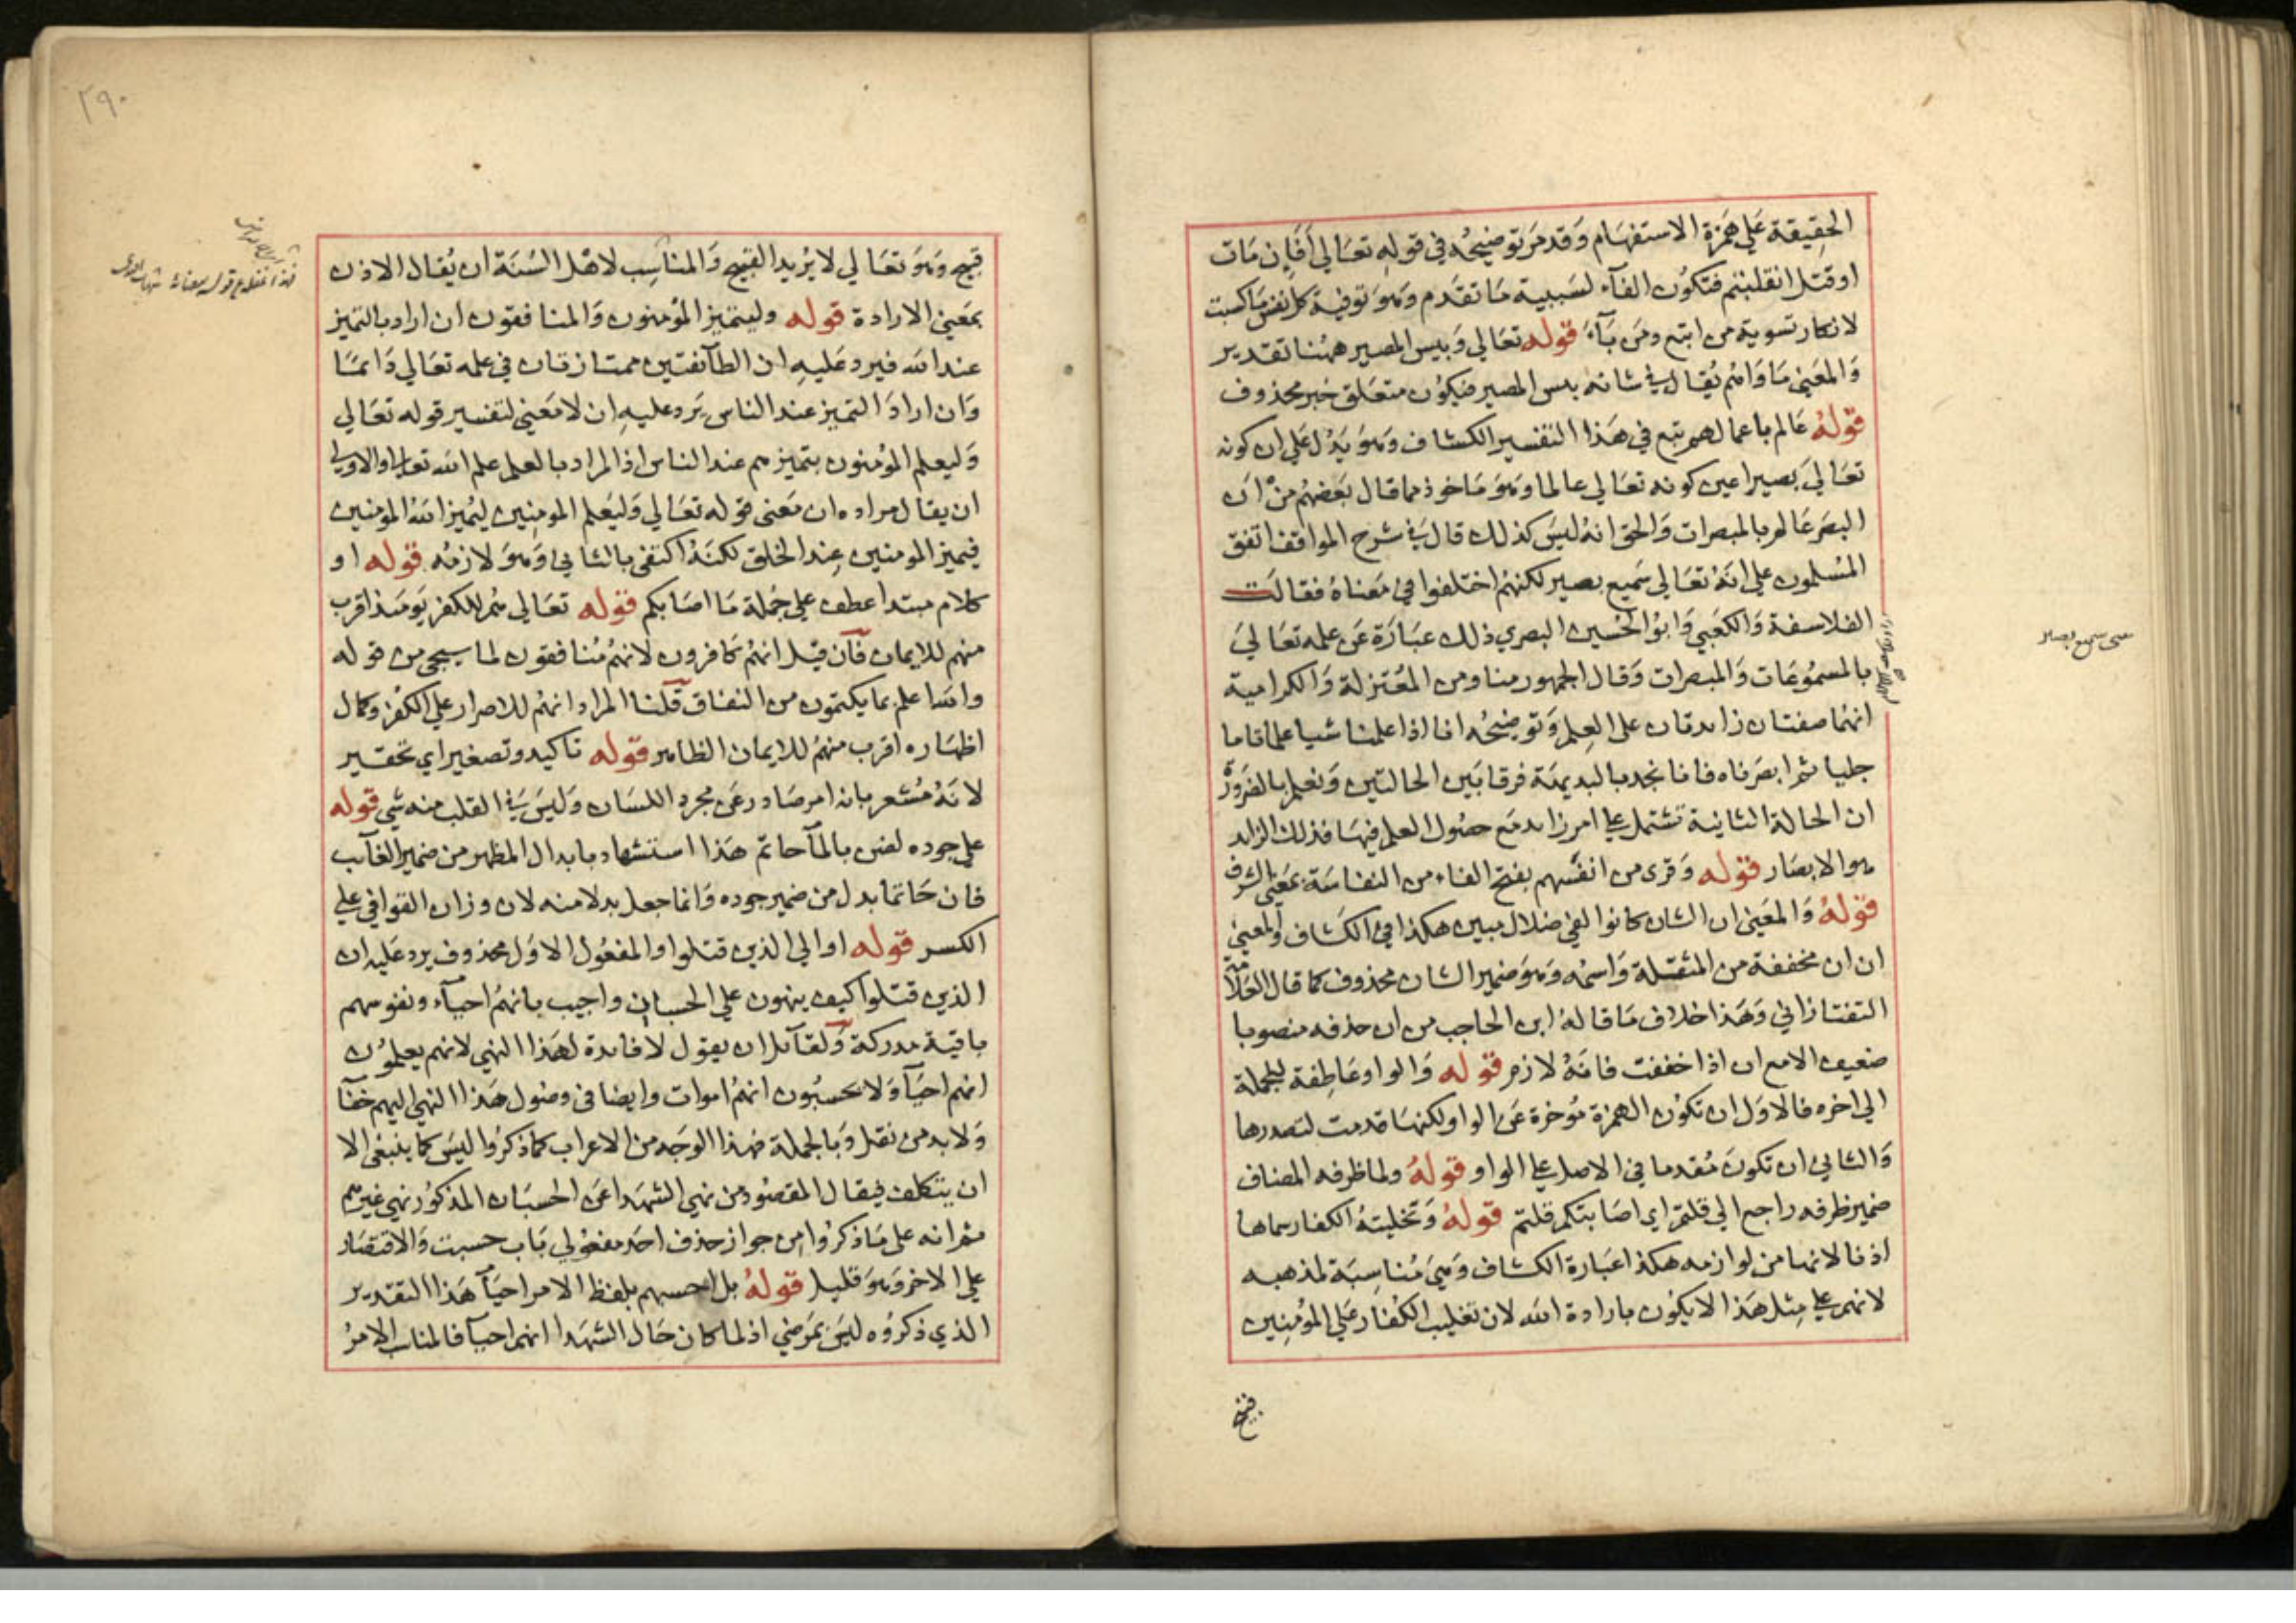 الحقيقة على همزة الاستفهام وقد مر توضيحه في قوله تعالي أفإن مات
او قتل انقلبتم فتكون الفآء لسببية ما تقدم وهو توفية كل نفس ما كسبت
لانكار تسوية من اتبع ومن بآء قوله تعالي وبيس المصير ههنا تقدير
والمعنى ماواهم يُقال في شانه بيس المصير فيكون متعلق خبر محذوف
قوله عالم باعمالهم تبع في هذا التفسير الكشاف وهو يدل على ان كونه
تعالي بصيرا عين كونه تعالي عالما وهو ماخوذ مما قال بعضهم من ان
البصر عالم بالمبصرات والحق انه ليس كذلك قال في شرح المواقف اتفق
المسلمون على انه تعالي سميع بصير لكنهم اختلفوا في معناه فقالت
الفلاسفة والكعبي وابو الحسين البصري ذلك عبارة عن علمه تعالي
بالمسموعات والمبصرات وقال الجمهور منا ومن المعتزلة والكرامية
انهما صفتان زايدتان على العلم وتوضيحه انا اذا علمنا شيا علما تاما
جليا ثم ابصرناه فانا نجد بالبديهة فرقا بين الحالتين ونعلم بالضرورة
ان الحالة الثانية تشتمل على امر زايد مع حصول العلم فيها فذلك الزايد
هو الابصار قوله وقرى من انفسهم بفتح الفاء من النفاسة بمعنى الشرف
قوله والمعنى ان الشان كانوا لفي ضلال مبين هكذا في الكشاف والمعنى
ان ان مخففة من المثقلة واسمه وهو ضمير الشان محذوف كما قال العلامة
التفتازاني وهذا خلاف ما قاله ابن الحاجب من ان حذفه منصوبا
ضعيف الا مع ان اذا خففت فانه لازم قوله والواو عاطفة للجملة
الي اخره فالاول ان تكون الهمزة موخرة عن الواو لكنها قدمت لتصدرها
والثاني ان تكون مقدما في الاصل على الواو قوله ولما ظرفه المضاف
ضمير ظرفه راجع الي قلتم اي اصابتكم قلتم قوله وتخليته الكفار سماها
اذنا لانها من لوازمه هكذا عبارة الكشاف وهي مناسبة لمذهبه
لانهم على مثل هذا لا يكون بارادة الله لان تغليب الكفار على المؤمنين
قبيح
معنى سميع بصير
٢٩٠
قبيح وهو تعالي لا يريد القبيح والمناسب لاهل السنة ان يُقال الاذن
بمعنى الارادة قوله وليتميز المؤمنون والمنافقون ان اراد بالتميز
عند الله فيرد عليه ان الطآئفتين ممتازتان في علمه تعالي دائما
وان اراد التميز عند الناس يرد عليه ان لا معنى لتفسير قوله تعالي
وليعلم المؤمنون بتميزهم عند الناس اذ المراد بالعلم علم الله تعالى والاولى
ان يقال مراده ان معنى قوله تعالي وليعلم المومنين ليميز الله المومنين
فيميز المومنين عند الخلق لكنه اكتفى بالثاني وهو لازمه قوله او
كلام مبتدا عطف على جملة ما اصابكم قوله تعالي هم للكفر يومئذ اقرب
منهم للايمان فان قيل انهم كافرون لانهم منافقون لما سيجي من قوله
والله اعلم بما يكتمون من النفاق قلنا المراد انهم للاصرار على الكفر وكمال
اظهاره اقرب منهم للايمان الظاهر قوله تاكيد وتصغير اي تحقير
لانه مشعر بانه امر صادر عن مجرد اللسان وليس في القلب منه شي قوله
على جوده لضن بالمآ حاتم هذا استشهاد بابدال المظهر من ضمير الغآيب
فان حاتما بدل من ضمير جوده وانما جعل بدلا منه لان وزان القوافي على
الكسر قوله او الي الذين قتلوا والمفعول الاول محذوف يرد عليه ان
الذين قتلوا كيف ينهون على الحسبان واجيب بانهم احيآء ونفوسهم
باقية مدركة ولقآئل ان يقول لا فائدة لهذا النهي لانهم يعلمون
انهم احيآ ولا يحسبون انهم اموات وايضا في وصول هذا النهي اليهم خفآ
ولا بد من نقل وبالجملة فهذا الوجه من الاعراب كما ذكروا ليس كما ينبغي الا
ان يتكلف فيقال المقصود من نهي الشهدا عن الحسبان المذكور نهي غيرهم
ثم انه على ما ذكروا من جواز حذف احد مفعولي باب حسبت والاقتصار
على الاخر وهو قليل قوله بل احسبهم بلفظ الامر احيآ هذا التقدير
الذي ذكروه ليس بمرضي اذ لما كان حال الشهدا انهم احيآ فالمناسب الامر